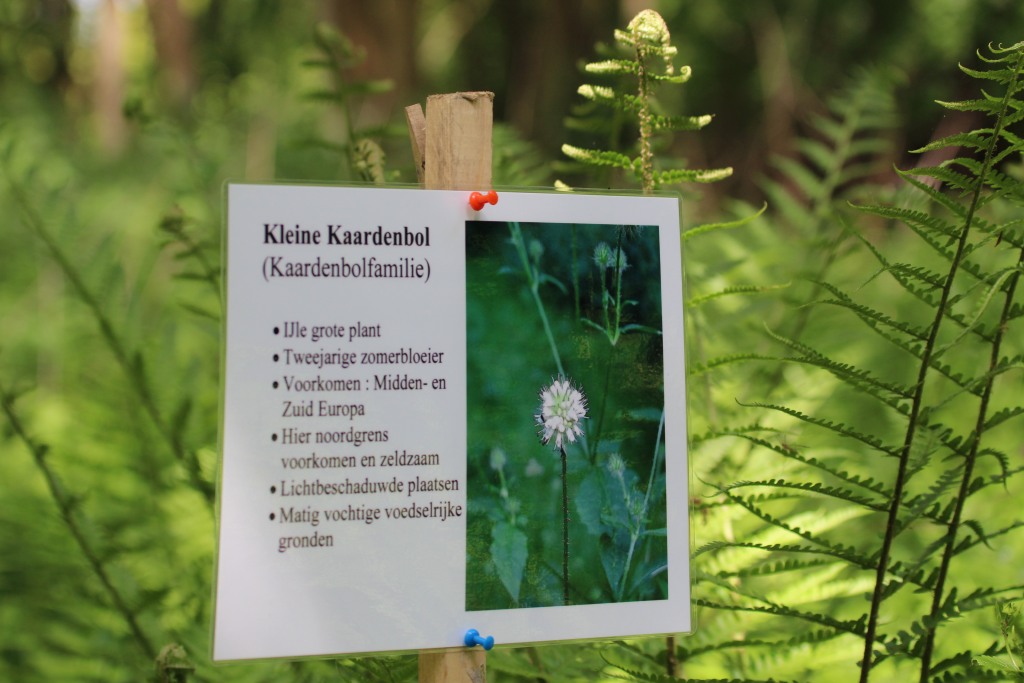 Kleine Kaardenbol
(Kaardenbolfamilie)
• IJle grote plant
• Tweejarige zomerbloeier
• Voorkomen : Midden- en
Zuid Europa
• Hier noordgrens
voorkomen en zeldzaam
• Lichtbeschaduwde plaatsen
• Matig vochtige voedselrijke
gronden